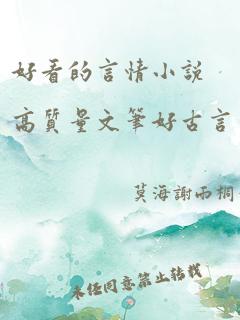 好看的言情小說
高質量文筆好古言
莫海謝雨桐
未經同意禁止轉載